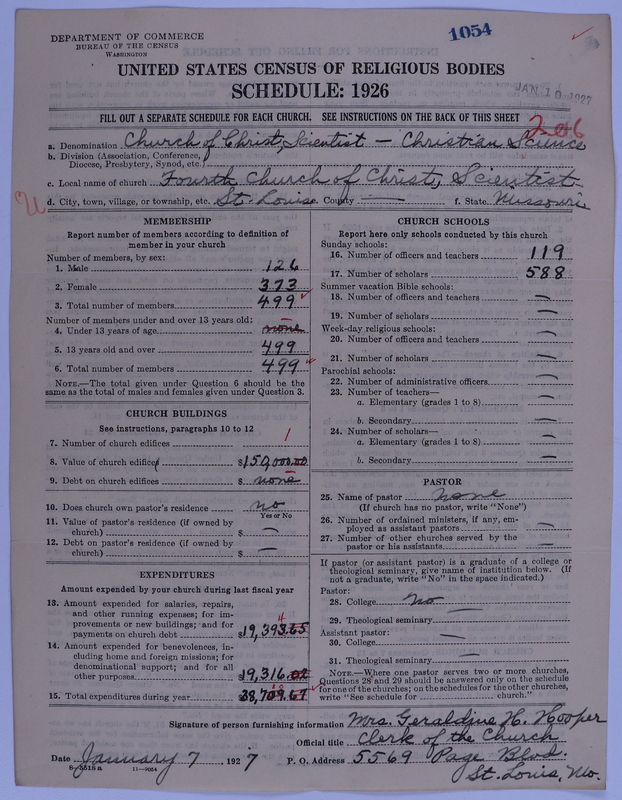 DEPARTMENT OF COMMERCE
BUREAU OF THE CENSUS
WASHINGTON
1054
UNITED STATES CENSUS OF RELIGIOUS BODIES
SCHEDULE: 1926
JAN 10 1927
FILL OUT A SEPARATE SCHEDULE FOR EACH CHURCH. SEE INSTRUCTIONS ON THE BACK OF THIS SHEET
a. Denomination Church of Christ, Scientist — Christian Science
b. Division (Association, Conference, Diocese, Presbytery, Synod, etc.)
c. Local name of church Fourth Church of Christ, Scientist
d. City, town, village, or township, etc. St. Louis. County — f. State Missouri
MEMBERSHIP
Report number of members according to definition of member in your church
Number of members, by sex:
1. Male 126
2. Female 373
3. Total number of members 499
Number of members under and over 13 years old:
4. Under 13 years of age none
5. 13 years old and over 499
6. Total number of members 499
NOTE.—The total given under Question 6 should be the same as the total of males and females given under Question 3.
CHURCH BUILDINGS
See instructions, paragraphs 10 to 12
7. Number of church edifices 1
8. Value of church edifices $150,000.00
9. Debt on church edifices $ none
10. Does church own pastor's residence no
Yes or No
11. Value of pastor's residence (if owned by church) $ —
12. Debt on pastor's residence (if owned by church) $ —
EXPENDITURES
Amount expended by your church during last fiscal year
13. Amount expended for salaries, repairs, and other running expenses; for improvements or new buildings; and for payments on church debt $19,393.65
14. Amount expended for benevolences, including home and foreign missions; for denominational support; and for all other purposes $19,316.02
15. Total expenditures during year 38,709.67
CHURCH SCHOOLS
Report here only schools conducted by this church
Sunday schools:
16. Number of officers and teachers 119
17. Number of scholars 588
Summer vacation Bible schools:
18. Number of officers and teachers —
19. Number of scholars —
Week-day religious schools:
20. Number of officers and teachers —
21. Number of scholars —
Parochial schools:
22. Number of administrative officers —
23. Number of teachers—
a. Elementary (grades 1 to 8) —
b. Secondary —
24. Number of scholars—
a. Elementary (grades 1 to 8) —
b. Secondary —
PASTOR
25. Name of pastor none
(If church has no pastor, write "None")
26. Number of ordained ministers, if any, employed as assistant pastors —
27. Number of other churches served by the pastor or his assistants —
If pastor (or assistant pastor) is a graduate of a college or theological seminary, give name of institution below. (If not a graduate, write "No" in the space indicated.)
Pastor:
28. College no
29. Theological seminary —
Assistant pastor:
30. College —
31. Theological seminary —
NOTE.—Where one pastor serves two or more churches, Questions 28 and 29 should be answered only on the schedule for one of the churches; on the schedules for the other churches, write "See schedule for church."
Signature of person furnishing information Mrs. Geraldine H. Hooper
Official title Clerk of the Church
Date January 7, 1927 P. O. Address 5569 Page Blvd.
St. Louis, Mo.
8-5518 a 11-9054